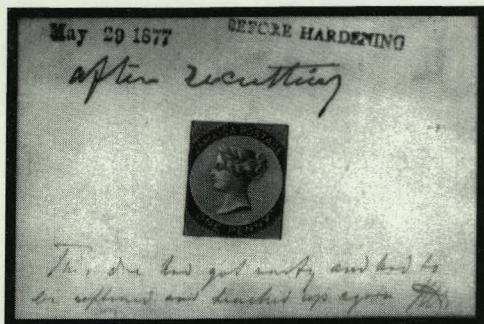 May 29 1877
BEFORE HARDENING
after recutting
JAMAICA POSTAGE
ONE PENNY
This die had got rusty and had to
be softened and touched up again